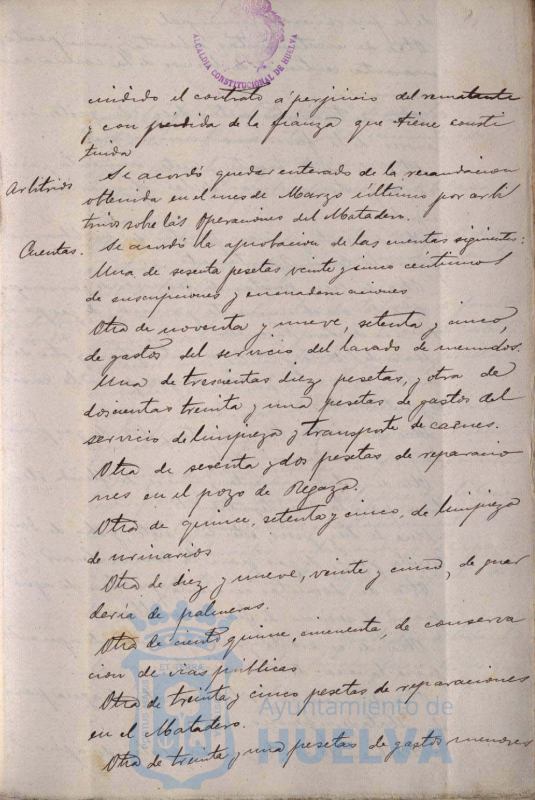 ALCALDIA CONSTITUCIONAL DE HUELVA
cindido el contrato á perjuicio del rematante
y con pérdida de la fianza que tiene consti
tuida
Arbitrios
Se acordó quedar enterado de la recaudacion
obtenida en el mes de Marzo último por arbi
trios sobre las Operaciones del Matadero.
Cuentas.
Se acordó la aprobacion de las cuentas siguientes:
Una de sesenta pesetas veinte y cinco centimos
de suscripciones y encuadernaciones
Otra de noventa y nueve, setenta y cinco,
de gastos del servicio del lavado de menudos.
Una de trescientas diez pesetas, y otra de
doscientas treinta y una pesetas de gastos del
servicio de limpieza y transporte de carnes.
Otra de sesenta y dos pesetas de reparacio
nes en el pozo de Regaza.
Otra de quince, setenta y cinco, de limpieza
de urinarios
Otra de diez y nueve, veinte y cinco, de guar
dería de palmeras.
Otra de ciento quince, cincuenta, de conserva
cion de vías públicas
Otra de treinta y cinco pesetas de reparaciones
en el Matadero.
Otra de treinta y una pesetas de gastos menores
Ayuntamiento de
HUELVA